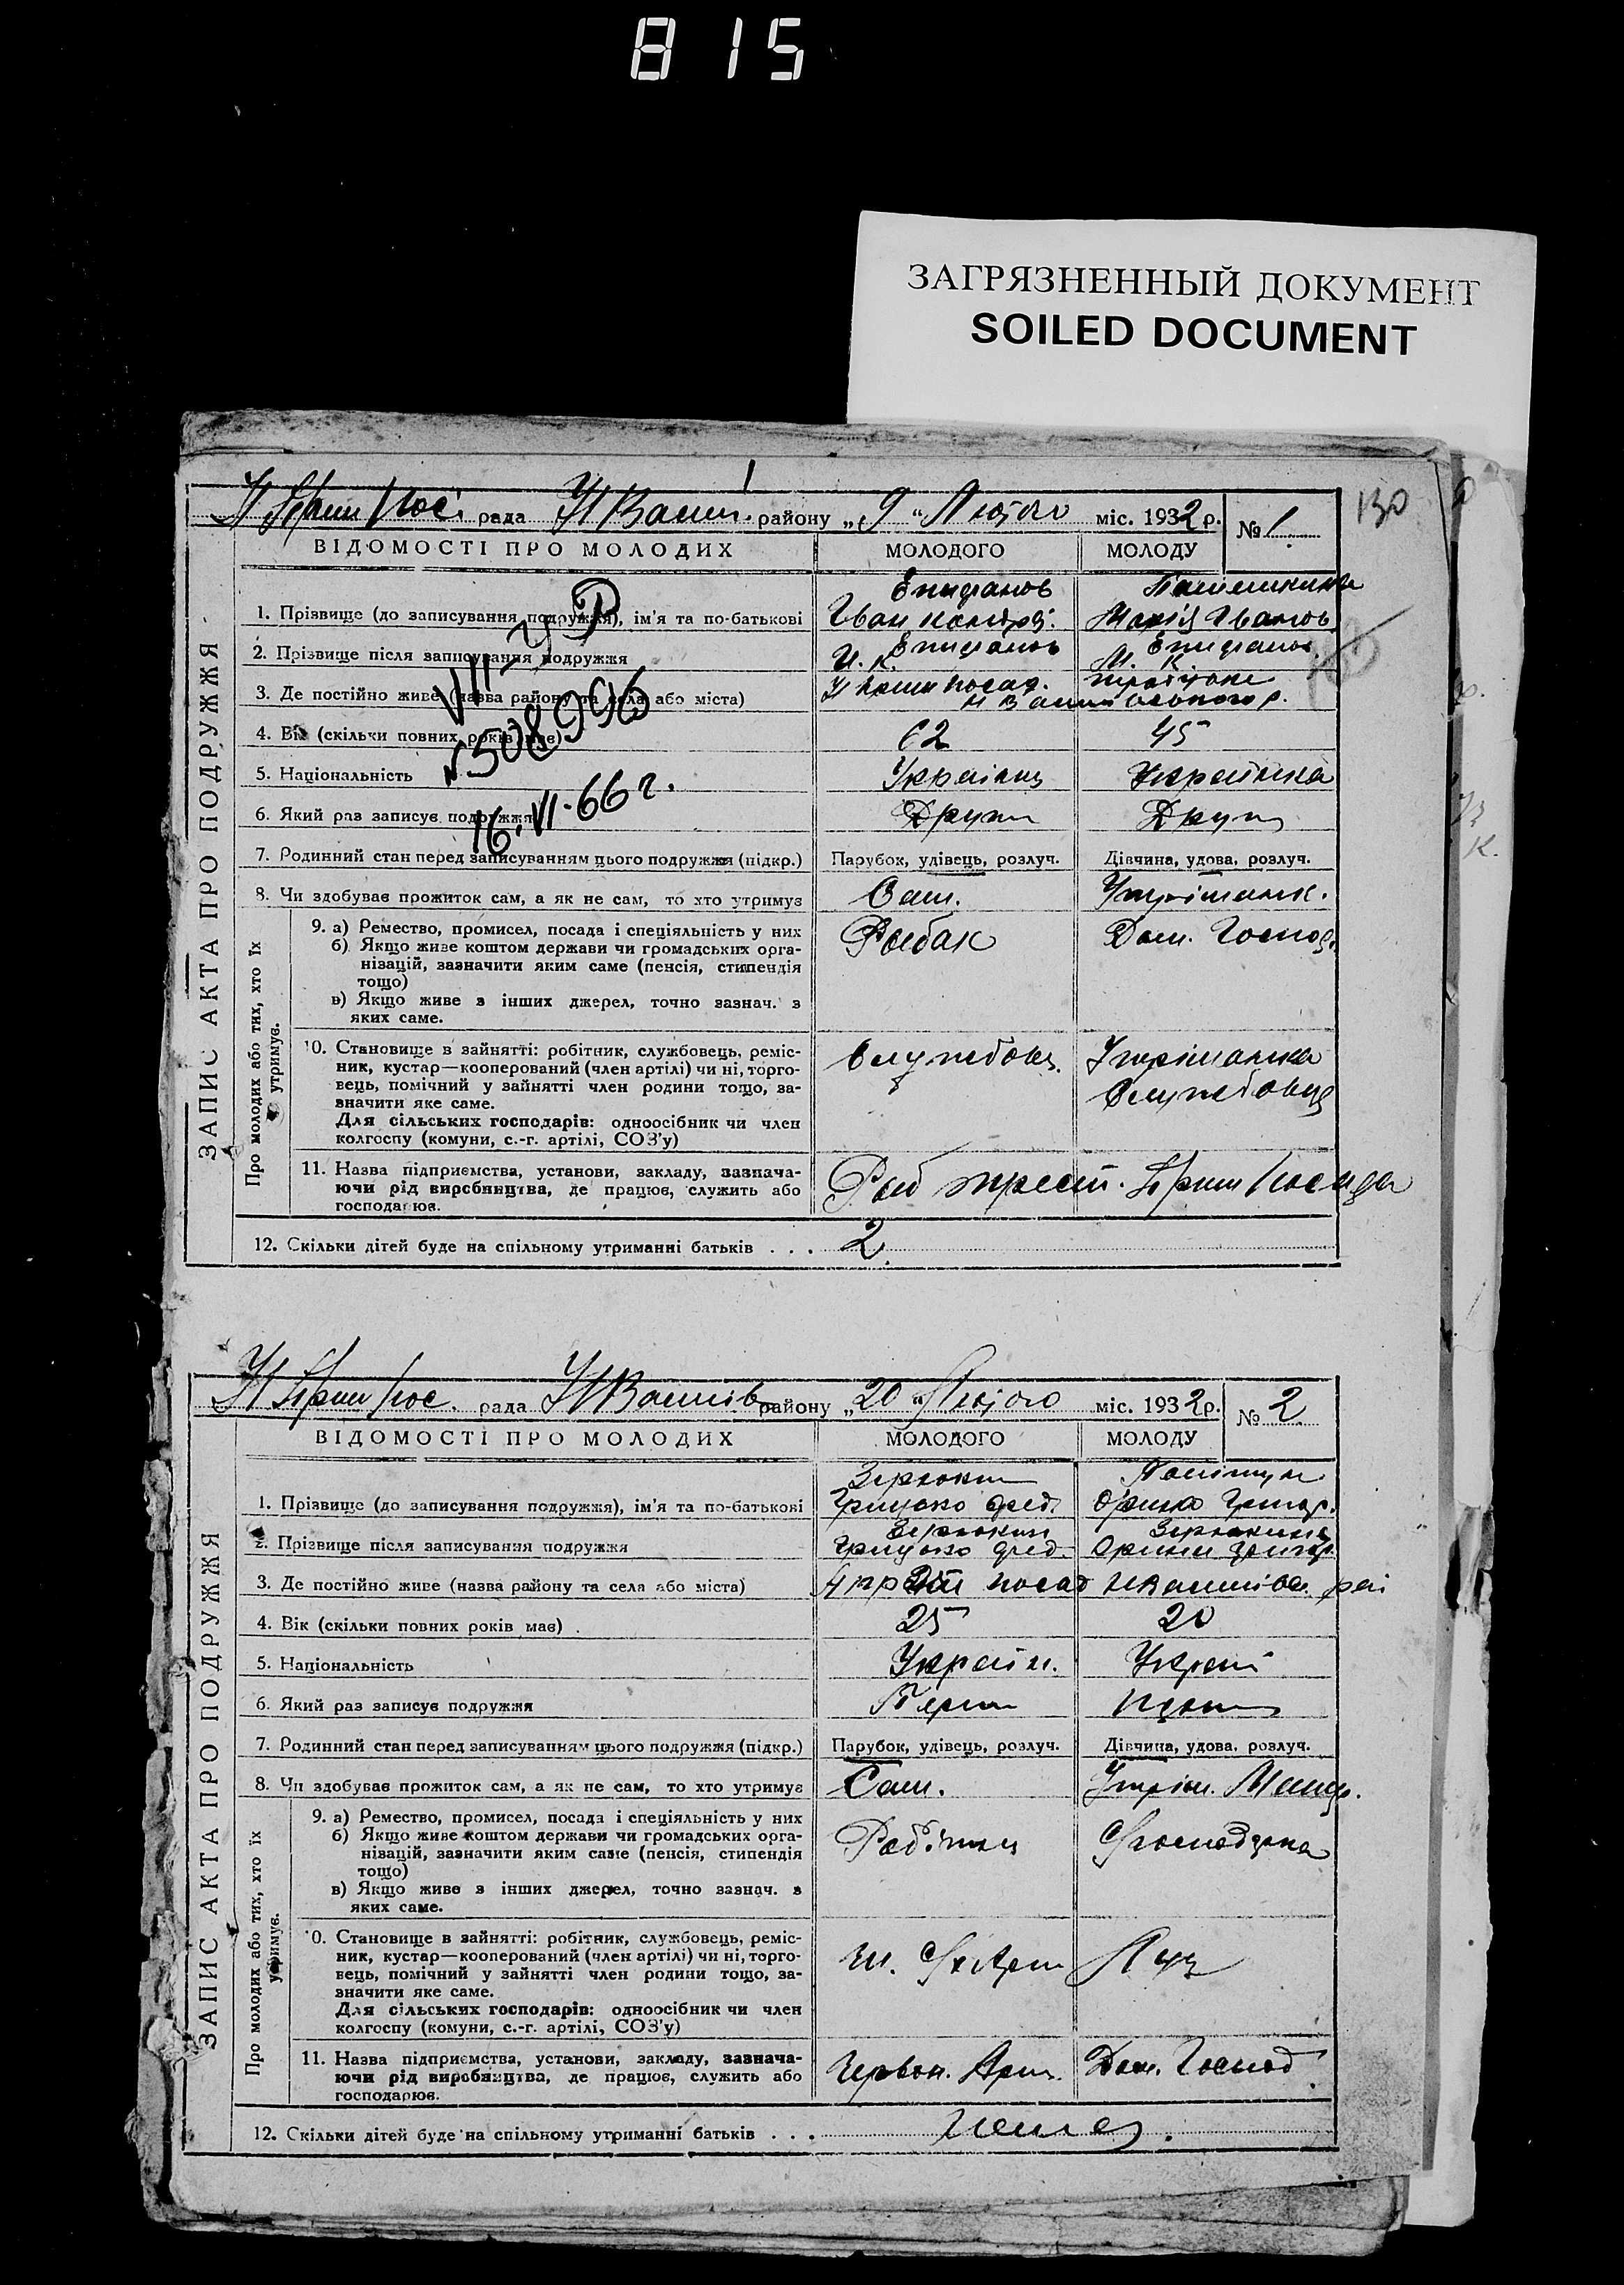 815
ЗАГРЯЗНЕННЫЙ ДОКУМЕНТ
SOILED DOCUMENT
130
рада району „9“ Лютого міс. 1932 р. № 1
ВІДОМОСТІ ПРО МОЛОДИХ МОЛОДОГО МОЛОДУ
ЗАПИС АКТА ПРО ПОДРУЖЖЯ
1. Прізвище (до записування подружжя), ім'я та по-батькові Епифанов
Іван Марія Іванов.
2. Прізвище після записування подружжя Епифанов И. К. Епифанов. М. К.
3. Де постійно живе (назва району та села або міста)
4. Вік (скільки повних років має) 62 45
5. Національність Українц Українка
6. Який раз записує подружжя Други Други
7. Родинний стан перед записуванням цього подружжя (підкр.) Парубок, удівець, розлуч. Дівчина, удова, розлуч.
8. Чи здобуває прожиток сам, а як не сам, то хто утримує Сам. Утриманк.
Про молодих або тих, хто їх утримує.
9. а) Ремество, промисел, посада і спеціяльність у них Рыбак Дом. Господ.
б) Якщо живе коштом держави чи громадських орга-
нізацій, зазначити яким саме (пенсія, стипендія
тощо)
в) Якщо живе з інших джерел, точно зазнач. з
яких саме.
10. Становище в зайнятті: робітник, службовець, реміс- Службовц. Утриманка
ник, кустар—кооперований (член артілі) чи ні, торго- Службовця
вець, помічний у зайнятті член родини тощо, за-
значити яке саме.
Для сільських господарів: одноосібник чи член
колгоспу (комуни, с.-г. артілі, СОЗ'у)
11. Назва підприємства, установи, закладу, зазнача- Риб трест.
ючи рід виробництва, де працює, служить або
господарює.
12. Скільки дітей буде на спільному утриманні батьків . . . 2
VII-УР
№508996
16.VI-66 г.
рада району „20“ Лютого міс. 1932 р. № 2
ВІДОМОСТІ ПРО МОЛОДИХ МОЛОДОГО МОЛОДУ
ЗАПИС АКТА ПРО ПОДРУЖЖЯ
1. Прізвище (до записування подружжя), ім'я та по-батькові Зерюкин
Грицько Фед. Орина Григор.
2. Прізвище після записування подружжя Зерюкин Зерюкина
Грицько Фед. Орина Григор.
3. Де постійно живе (назва району та села або міста) посад
4. Вік (скільки повних років має) . 25 20
5. Національність Україн. Украї
6. Який раз записує подружжя Перш
7. Родинний стан перед записуванням цього подружжя (підкр.) Парубок, удівець, розлуч. Дівчина, удова, розлуч.
8. Чи здобуває прожиток сам, а як не сам, то хто утримує Сам. Утрим.
Про молодих або тих, хто їх утримує.
9. а) Ремество, промисел, посада і спеціяльність у них Робітниц
б) Якщо живе коштом держави чи громадських орга-
нізацій, зазначити яким саме (пенсія, стипендія
тощо)
в) Якщо живе з інших джерел, точно зазнач. з
яких саме.
10. Становище в зайнятті: робітник, службовець, реміс-
ник, кустар—кооперований (член артілі) чи ні, торго-
вець, помічний у зайнятті член родини тощо, за-
значити яке саме.
Для сільських господарів: одноосібник чи член
колгоспу (комуни, с.-г. артілі, СОЗ'у)
11. Назва підприємства, установи, закладу, зазнача- Червон. Арт. Дом. Господ.
ючи рід виробництва, де працює, служить або
господарює.
12. Скільки дітей буде на спільному утриманні батьків . . . Немає.